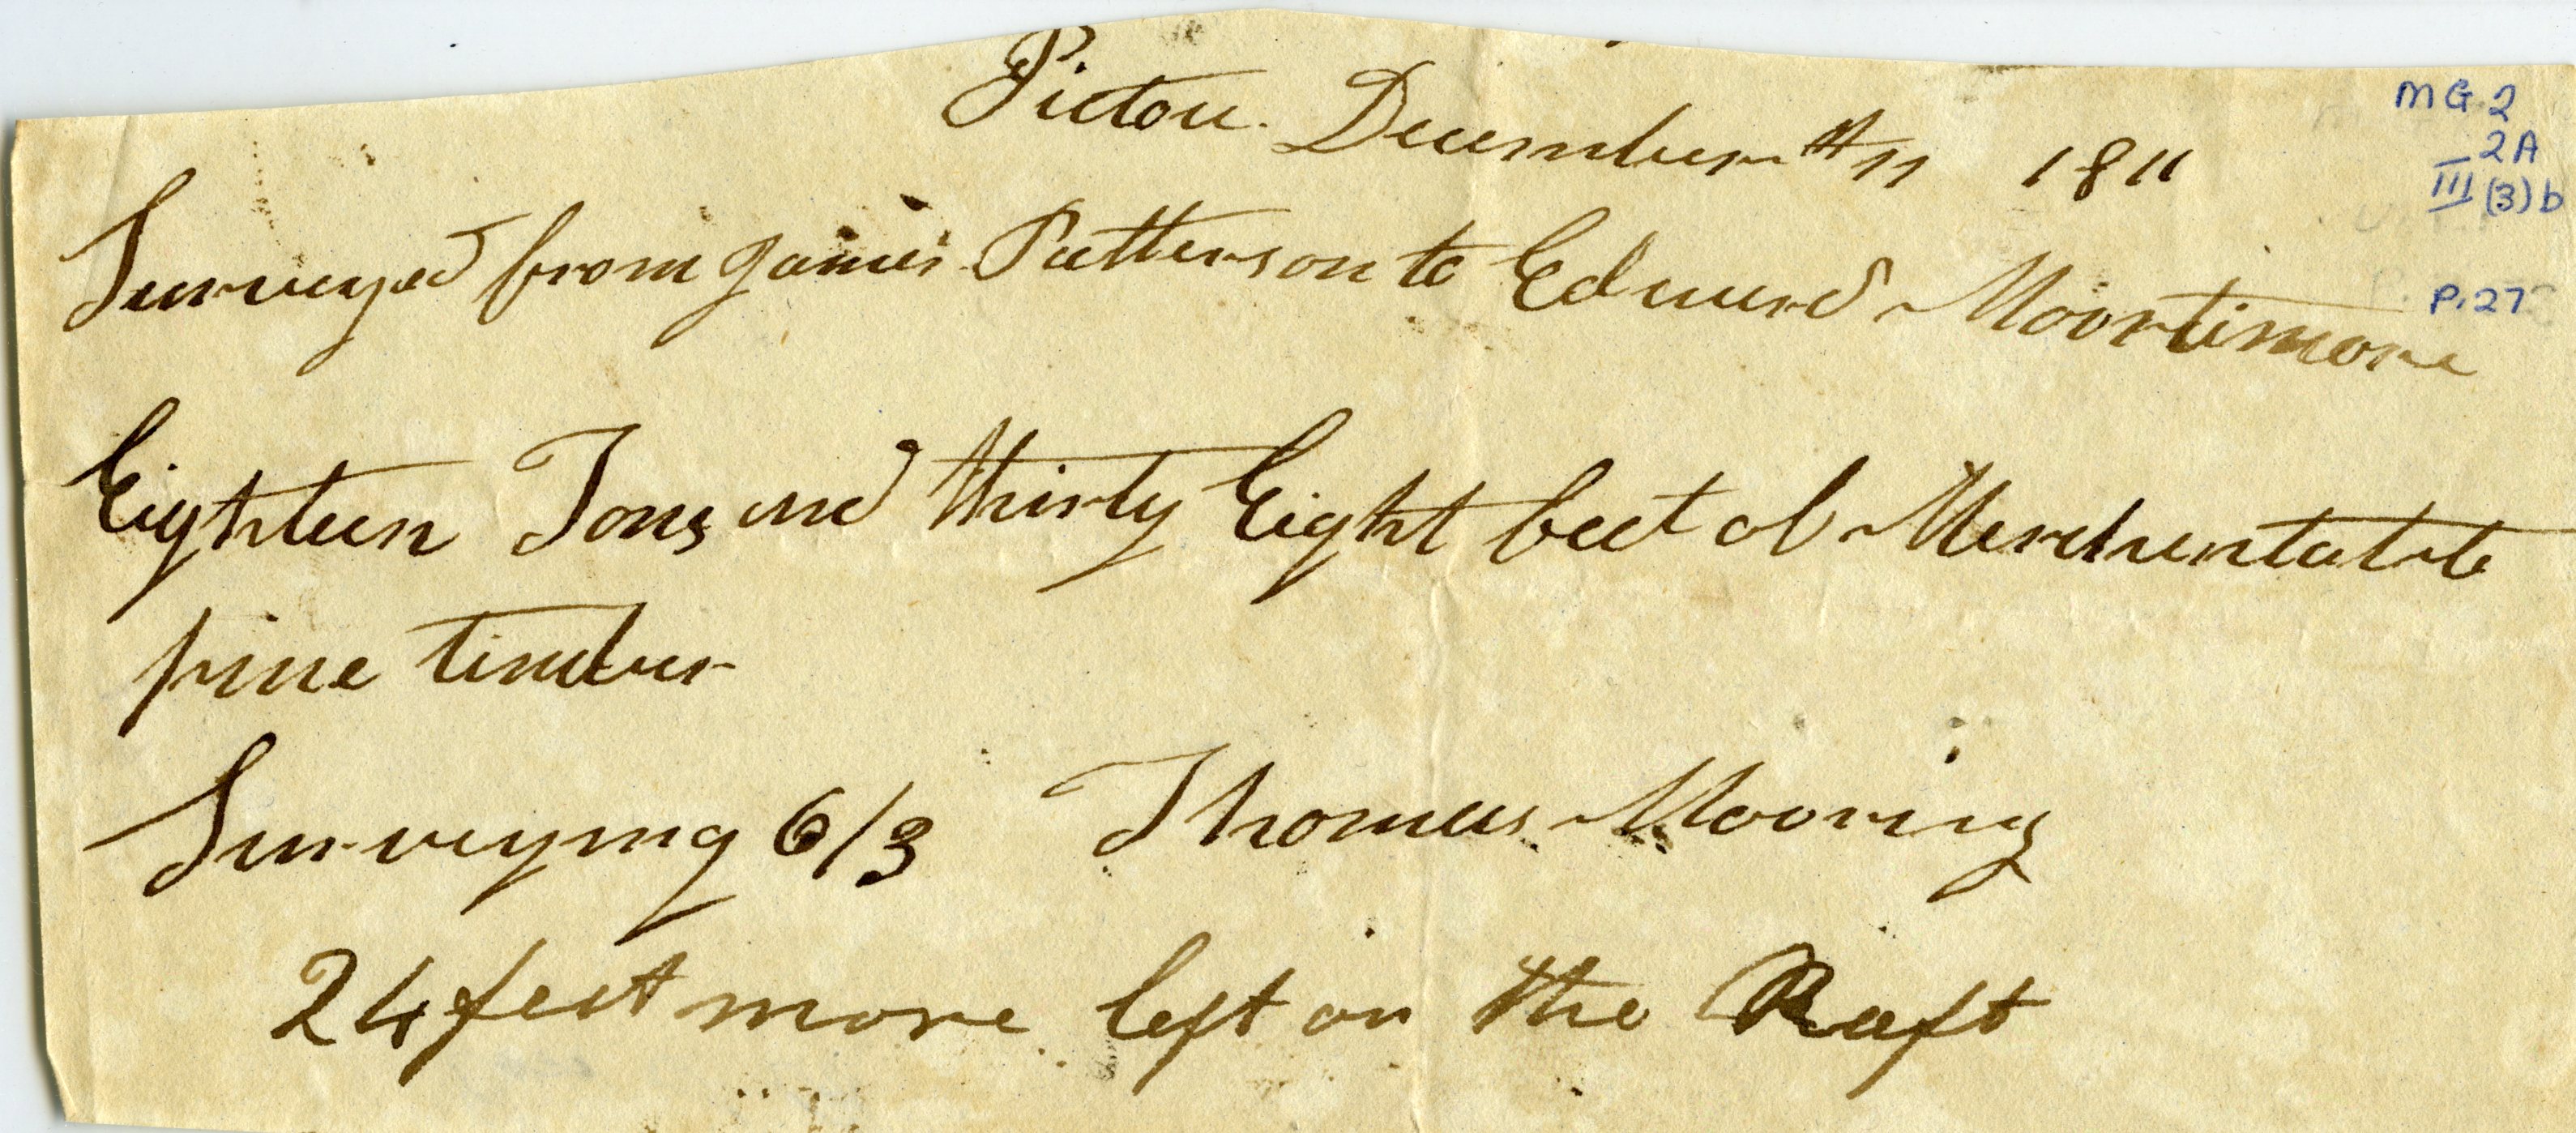 Pictou. December #11 1811
MG 2
2A
III (3) b
Surveyed from James Patterson to Edward Moortimore
P. 27
Eighteen Tons and thirty Eight feet of Merchentable
pine timber
Surveying 6/3 Thomas Mooring
24 feet more left on the Raft